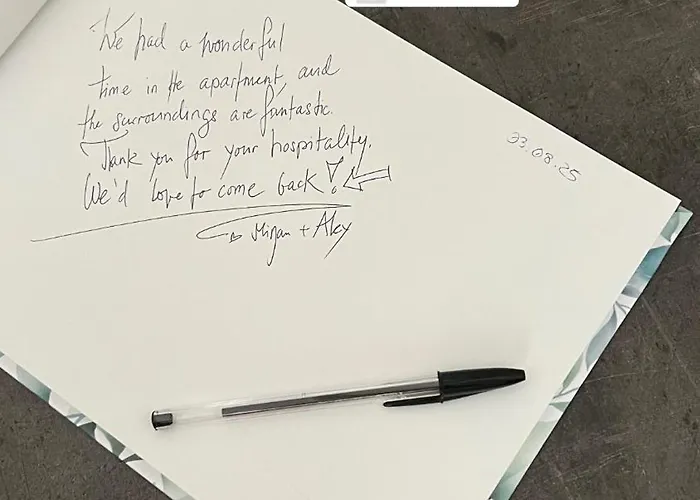 We had a wonderful
time in the apartment, and
the surroundings are fantastic.
Thank you for your hospitality.
We'd love to come back!
+ Alex
23.08.25